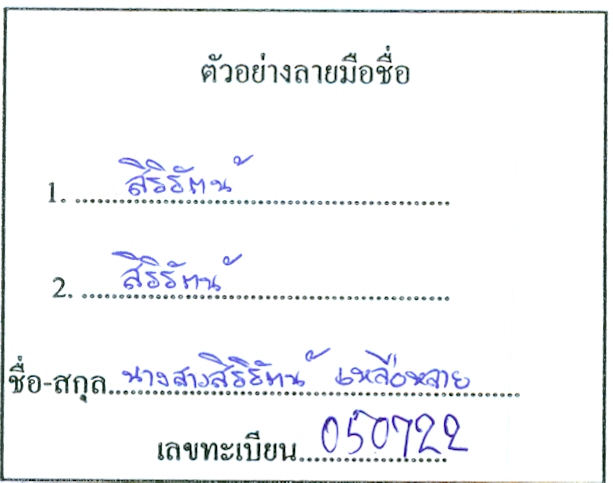 ตัวอย่างลายมือชื่อ
1. สิริรัตน์
2. สิริรัตน์
ชื่อ-สกุล นางสาวสิริรัตน์ เหลือหลาย
เลขทะเบียน 050722